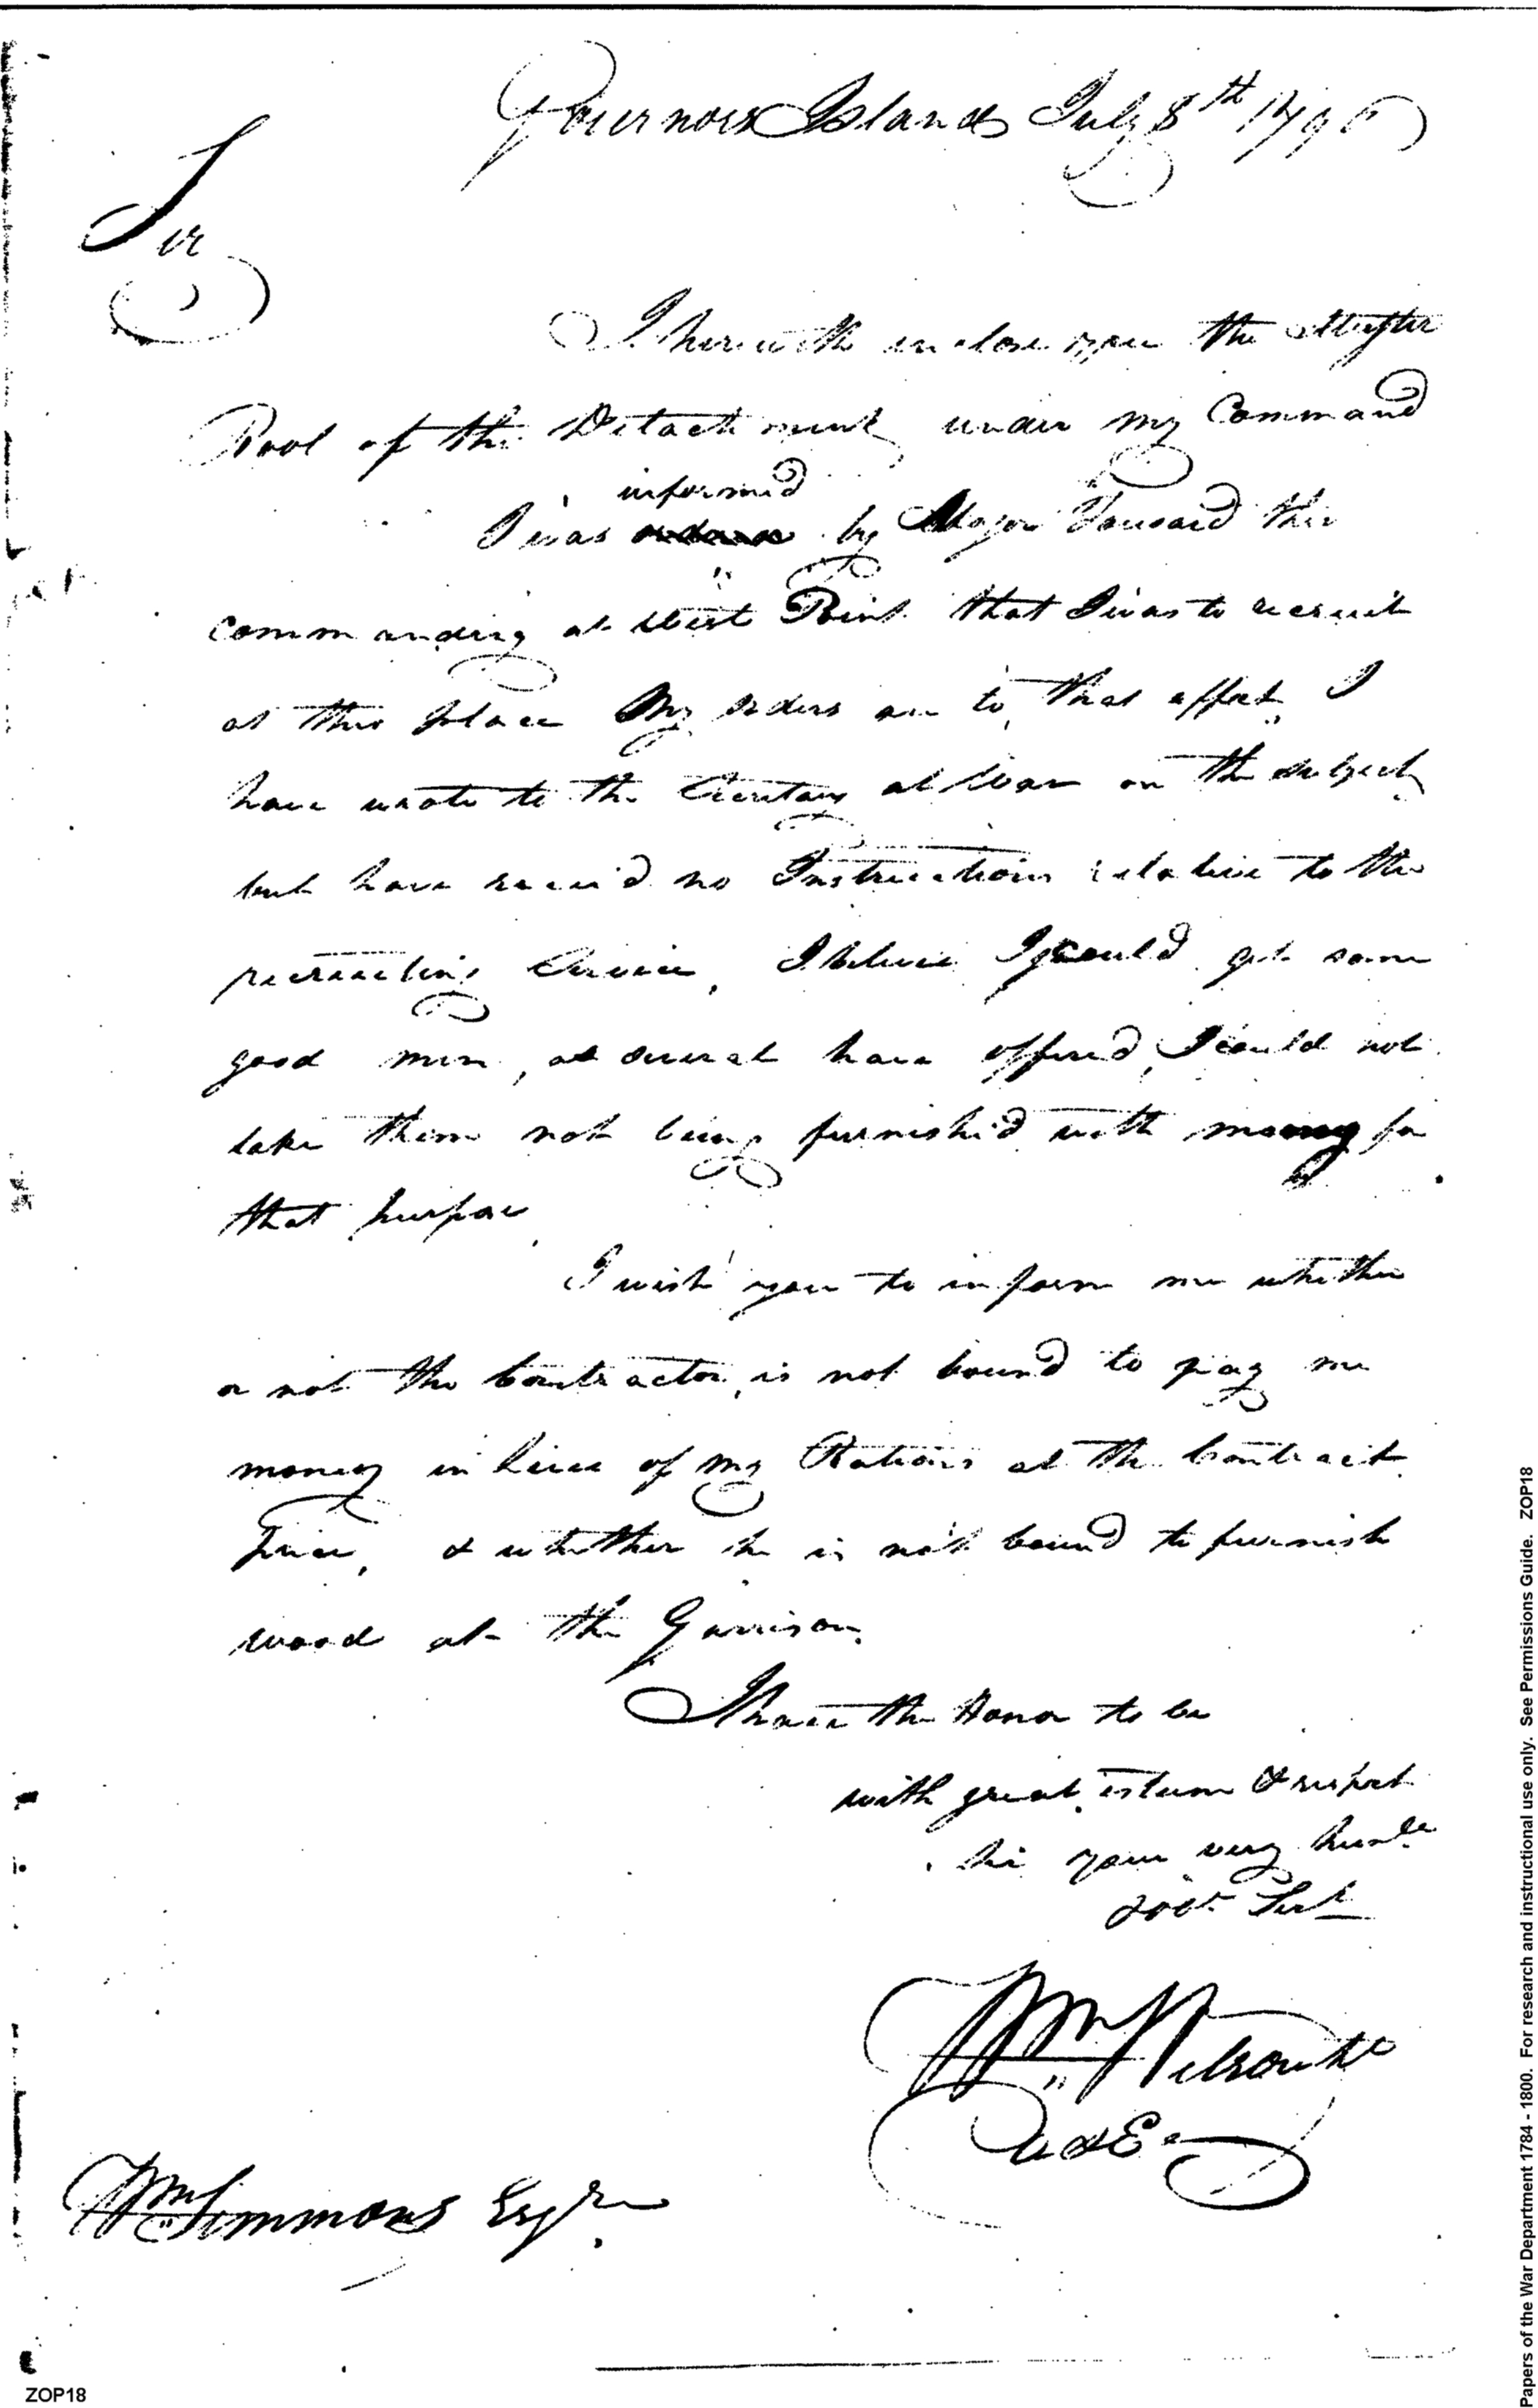 Governors Island July 8th 1796
Sir
I herewith inclose you the Muster
Rool of the Detachment under my Command
informed
I was by Major Tousard then
commanding at West Point that I was to recruit
at this place My orders are to that effect, I
have wrote to the Secretary at War on the subject
but have receiv'd no Instructions relative to the
recruiting Service, I believe I could get some
good men, as several have offered, I could not
take them not being furnish'd with money for
that purpose,
I wish you to inform me whether
or not the Contractor, is not bound to pay me
money in lieu of my Rations at the Contract
Price, & whether he is not bound to furnish
wood at the Garrison,
I have the Honor to be
with great esteem & respect
Sir your very humle
Sert
Wm
A & E
Wm Simmons Esqr
ZOP18
Papers of the War Department 1784 - 1800. For research and instructional use only. See Permissions Guide. ZOP18